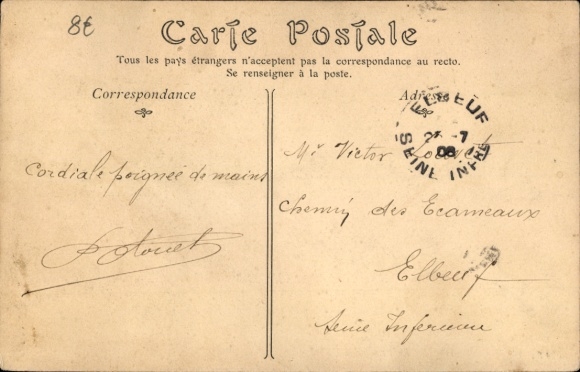 8€
Carte Postale
Tous les pays étrangers n'acceptent pas la correspondance au recto.
Se renseigner à la poste.
Correspondance
Cordiale poignée de mains
Adresse
ELBEUF
SEINE INFRE
08
Mr Victor
Chemin des Ecameaux
Elbeuf
Seine Inferieure